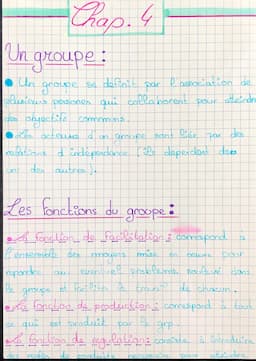 Chap. 4
Un groupe :
• Un groupe se définit par l'association de
plusieurs persones qui collaborent pour atteindre
des objectifs commens.
• Les acteurs d'un groupe sont liés par des
relations d'indépendance (ils dependent des
uns des autres).
Les fonctions du groupe :
• La fonction de facilitation : correspond à
l'ensemble des moyens mise en oeuvre pour
repondre aux eventuel problems soulevé dans
le groupe et facilite le travail de chacun.
• La fonction de production : correspond à tout
ce qui est produit par le grp.
• La fonction de regulation : consiste à introduire